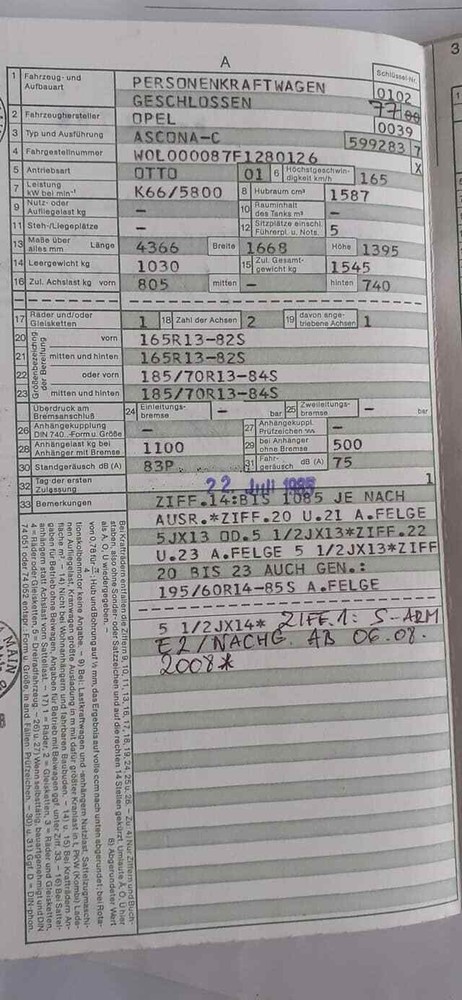 A
Schlüssel-Nr.
1 Fahrzeug- und Aufbauart PERSONENKRAFTWAGEN 0102
GESCHLOSSEN 77
2 Fahrzeughersteller OPEL 0039
3 Typ und Ausführung ASCONA-C 599283 7
4 Fahrgestellnummer WOL000087F1280126 X
5 Antriebsart OTTO 01 6 Höchstgeschwindigkeit km/h 165
7 Leistung kW bei min⁻¹ K66/5800 8 Hubraum cm³ 1587
9 Nutz- oder Aufliegelast kg – 10 Rauminhalt des Tanks m³ –
11 Steh-/Liegeplätze – 12 Sitzplätze einschl. Führerpl. u. Nots. 5
13 Maße über alles mm Länge 4366 Breite 1668 Höhe 1395
14 Leergewicht kg 1030 15 Zul. Gesamtgewicht kg 1545
16 Zul. Achslast kg vorn 805 mitten – hinten 740
17 Räder und/oder Gleisketten 1 18 Zahl der Achsen 2 19 davon angetriebene Achsen 1
Größenbezeichnung der Bereifung
20 vorn 165R13-82S
21 mitten und hinten 165R13-82S
22 oder vorn 185/70R13-84S
23 mitten und hinten 185/70R13-84S
Überdruck am Bremsanschluß 24 Einleitungsbremse – bar 25 Zweileitungsbremse – bar
26 Anhängekupplung DIN 740..-Form u. Größe – 27 Anhängekuppl. Prüfzeichen –
28 Anhängelast kg bei Anhänger mit Bremse 1100 29 bei Anhänger ohne Bremse 500
30 Standgeräusch dB (A) 83P 31 Fahrgeräusch dB (A) 75
32 Tag der ersten Zulassung 22. Juli 1 1
33 Bemerkungen ZIFF.14:BIS 1085 JE NACH
AUSR.*ZIFF.20 U.21 A.FELGE
5JX13 OD.5 1/2JX13*ZIFF.22
U.23 A.FELGE 5 1/2JX13*ZIFF
20 BIS 23 AUCH GEN.:
195/60R14-85S A.FELGE
5 1/2JX14* ZIFF.1: S-ARM
E2/NACHG. AB 06.08.
2008*
MAIN